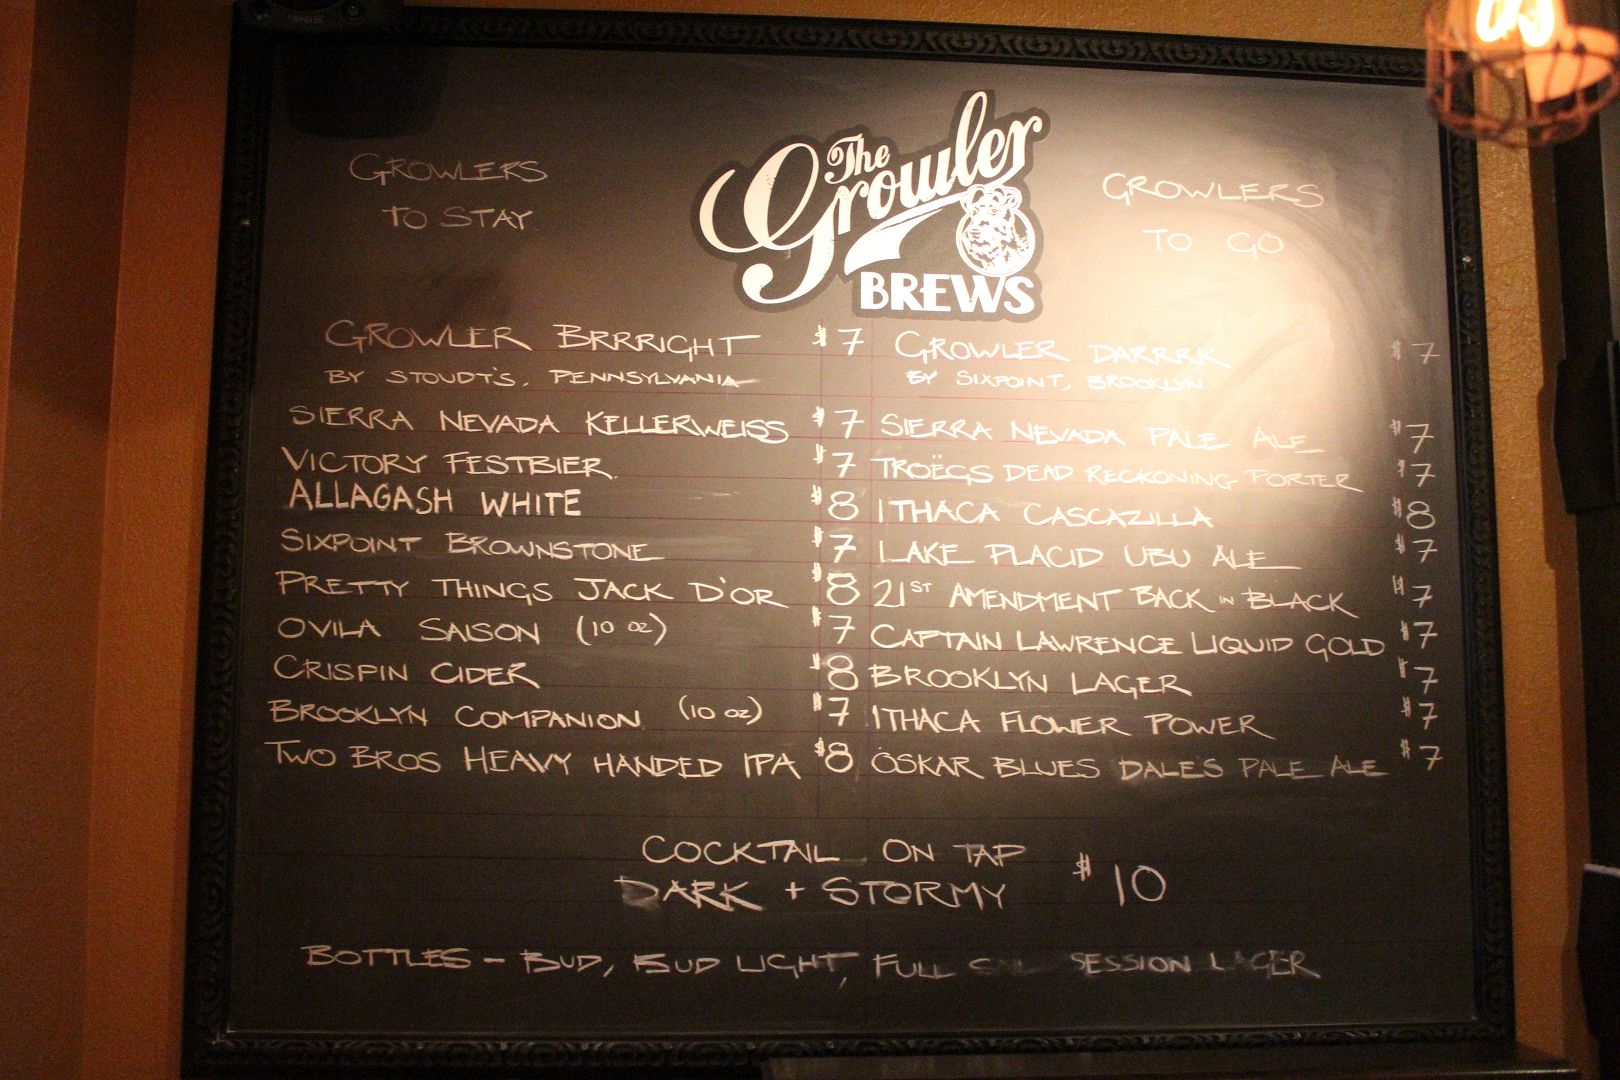 The Growler
BREWS
GROWLERS
TO STAY
GROWLER BRRRIGHT $7
BY STOUDT'S, PENNSYLVANIA
SIERRA NEVADA KELLERWEISS $7
VICTORY FESTBIER $7
ALLAGASH WHITE $8
SIXPOINT BROWNSTONE $7
PRETTY THINGS JACK D'OR $8
OVILA SAISON (10 OZ) $7
CRISPIN CIDER $8
BROOKLYN COMPANION (10 OZ) $7
TWO BROS HEAVY HANDED IPA $8
GROWLERS
TO GO
GROWLER DARRRK $7
BY SIXPOINT, BROOKLYN
SIERRA NEVADA PALE ALE $7
TROËGS DEAD RECKONING PORTER $7
ITHACA CASCAZILLA $8
LAKE PLACID UBU ALE $7
21ST AMENDMENT BACK IN BLACK $7
CAPTAIN LAWRENCE LIQUID GOLD $7
BROOKLYN LAGER $7
ITHACA FLOWER POWER $7
OSKAR BLUES DALES PALE ALE $7
COCKTAIL ON TAP
DARK + STORMY $10
BOTTLES - BUD, BUD LIGHT, FULL SESSION LAGER